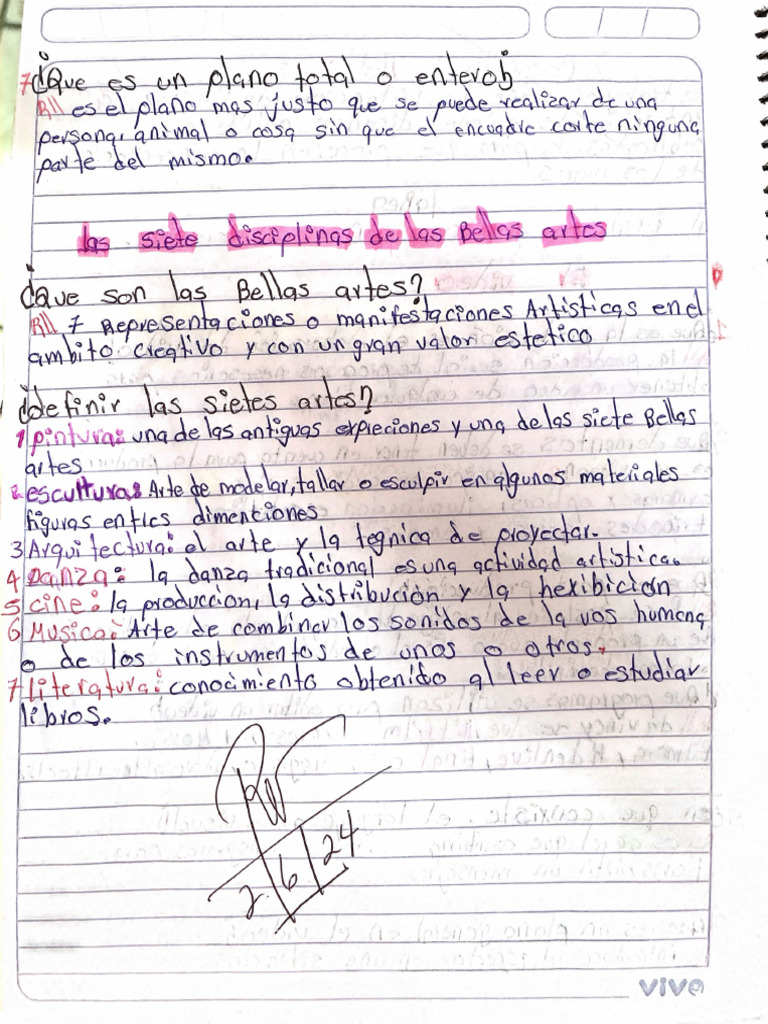 7 ¿Que es un plano total o entero?
R// es el plano mas justo que se puede realizar de una
persona, animal o cosa sin que el encuadre corte ninguna
parte del mismo.
las siete disciplinas de las Bellas artes
¿Que son las Bellas artes?
R// 7 Representaciones o manifestaciones Artisticas en el
ambito creativo y con un gran valor estetico
¿definir las sietes artes?
1 pintura: una de las antiguas expreciones y una de las siete Bellas
artes
2 escultura: Arte de modelar, tallar o esculpir en algunos materiales
figuras en tres dimentiones
3 Arquitectura: el arte y la tegnica de proyectar.
4 Danza: la danza tradicional es una actividad artistica.
5 cine: la produccion, la distribución y la hexibición
6 Musica: Arte de combinar los sonidos de la vos humana
o de los instrumentos de unos o otros.
7 literatura: conocimiento obtenido al leer o estudiar
libros.
2/6/24
vive